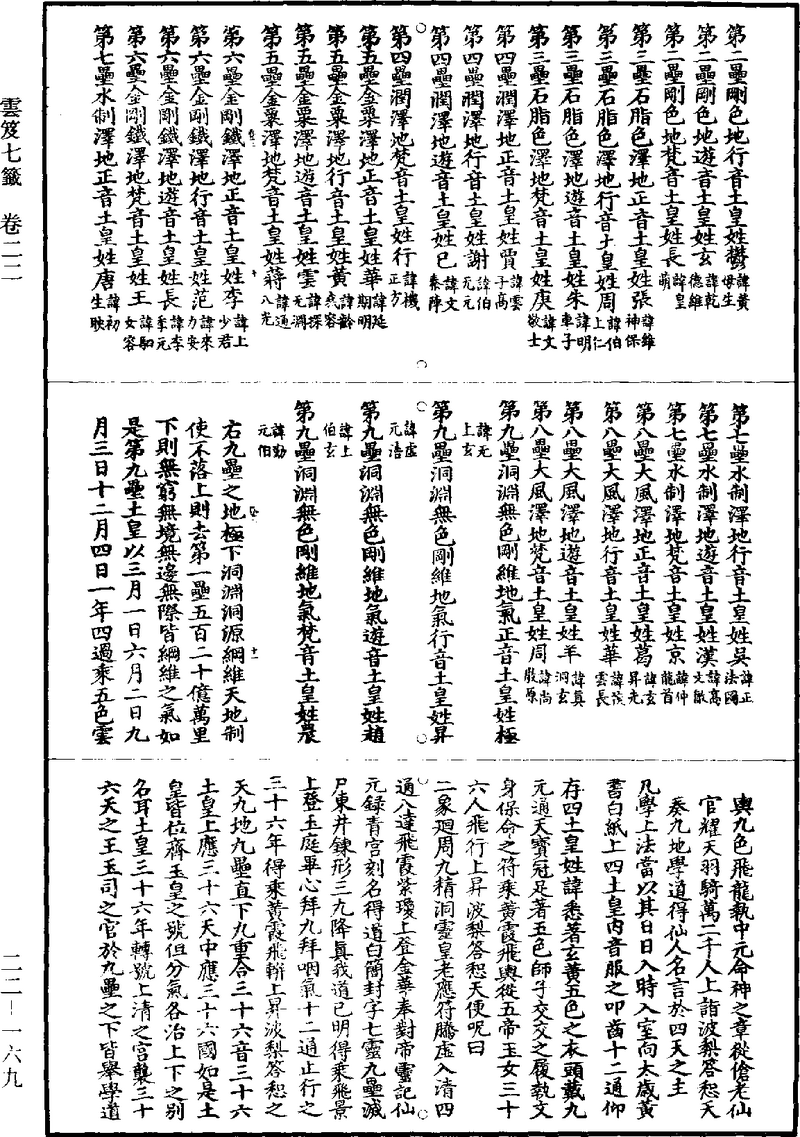 雲笈七籤　卷二二
二二－一六九
第二壘剛色地行音土皇姓鬱諱黃母生
第二壘剛色地遊音土皇姓玄諱乾德維
第二壘剛色地梵音土皇姓長諱皇萌
第三壘石脂色澤地正音土皇姓張諱維神保
第三壘石脂色澤地行音土皇姓周諱伯上仁
第三壘石脂色澤地遊音土皇姓朱諱明車子
第三壘石脂色澤地梵音土皇姓庚諱文敬士
第四壘潤澤地正音土皇姓賈諱雲子高
第四壘潤澤地行音土皇姓謝諱伯元元
第四壘潤澤地遊音土皇姓已諱文秦陣
第四壘潤澤地梵音土皇姓行諱機正方
第五壘金粟澤地正音土皇姓華諱延期明
第五壘金粟澤地行音土皇姓黃諱齡我容
第五壘金粟澤地遊音土皇姓雲諱探无淵
第五壘金粟澤地梵音土皇姓蔣諱通八光
第六壘金剛鐵澤地正音土皇姓李諱上少君
第六壘金剛鐵澤地行音土皇姓范諱來力安
第六壘金剛鐵澤地遊音土皇姓長諱李季元
第六壘金剛鐵澤地梵音土皇姓王諱馹女容
第七壘水制澤地正音土皇姓唐諱初生映
第七壘水制澤地行音土皇姓吳諱正法圖
第七壘水制澤地遊音土皇姓漢諱高文徹
第七壘水制澤地梵音土皇姓京諱仲龍首
第八壘大風澤地正音土皇姓葛諱玄昇先
第八壘大風澤地行音土皇姓華諱雲長
第八壘大風澤地遊音土皇姓羊諱真洞玄
第八壘大風澤地梵音土皇姓周諱尚敬原
第九壘洞淵無色剛維地氣正音土皇姓極
諱无上玄
第九壘洞淵無色剛維地氣行音土皇姓昇
諱虛元浩
第九壘洞淵無色剛維地氣遊音土皇姓趙
諱上伯玄
第九壘洞淵無色剛維地氣梵音土皇姓農
諱勤元伯
右九壘之地極下洞淵洞源綱維天地制
使不落上則去第一壘五百二十億萬里
下則無窮無境無邊無際皆綱維之氣如
是第九壘土皇以三月一日六月二日九
月三日十二月四日一年四過乘五色雲
輿九色飛龍執中元命神之章從傖老仙
官耀天羽騎萬二千人上詣波梨答惒天
奏九地學道得仙人名言於四天之主
凡學上法當以其日日入時入室向太歲黃
書白紙上四土皇內音服之叩齒十二通仰
存四土皇姓諱悉著玄黃五色之衣頭戴九
元通天寶冠足著五色師子交交之履執文
身保命之符乘黃霞飛輿從五帝玉女三十
六人飛行上昇波梨答惒天便呪曰
二象廻周九精洞靈皇老應符騰虛入清四
通八達飛霞紫瓊上登金華奉對帝靈記仙
元錄青宮刻名得道白簡封字七靈九壘滅
尸東井鍊形三九降真我道已明得乘飛景
上登玉庭畢心拜九拜咽氣十二通止行之
三十六年得乘黃霞飛輧上昇波梨答惒之
天九地九壘直下九重合三十六音三十六
土皇上應三十六天中應三十六國如是土
皇皆位齊玉皇之號但分氣各治上下之別
名耳土皇三十六年轉號上清之宮襲三十
六天之王玉司之官於九壘之下皆舉學道